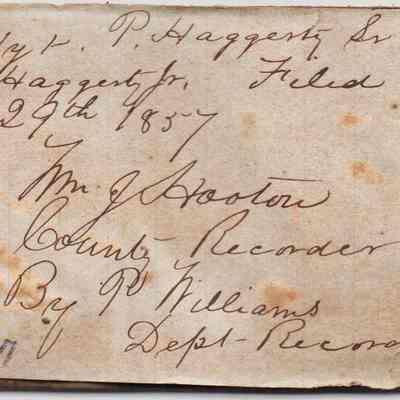 P. Haggerty Sr
Haggerty Jr. Filed
29th 1857
Wm. J. Hooton
County Recorder
By P Williams
Dept Record